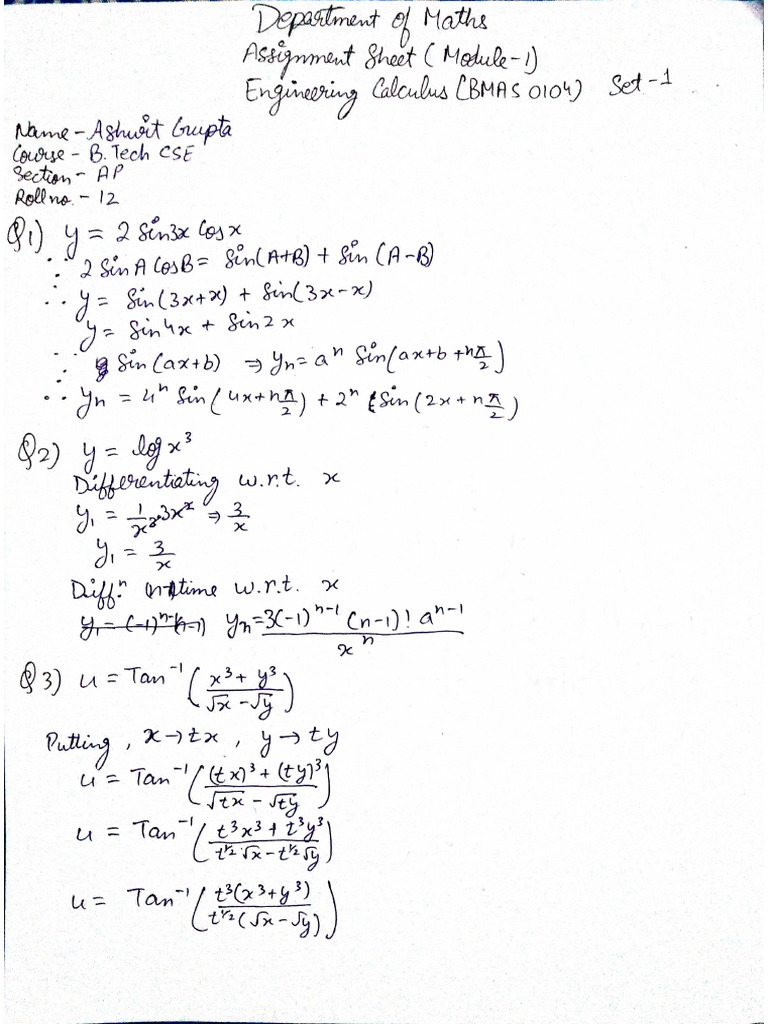 Department of Maths
Assignment Sheet (Module-1)
Engineering Calculus (BMAS 0104) Set-1
Name - Ashwit Gupta
Course - B. Tech CSE
Section - AP
Roll no. - 12
Q1) y = 2 Sin3x Cosx
∵ 2 Sin A Cos B = Sin(A+B) + Sin (A-B)
∴ y = Sin(3x+x) + Sin(3x-x)
y = Sin4x + Sin2x
∵ Sin (ax+b) ⇒ yₙ = aⁿ Sin(ax+b + nπ/2)
∴ yₙ = 4ⁿ Sin(4x+nπ/2) + 2ⁿ Sin(2x+nπ/2)
Q2) y = log x³
Differentiating w.r.t. x
y₁ = 1/x³ · 3x² ⇒ 3/x
y₁ = 3/x
Diffⁿ (n-1)time w.r.t. x
yₙ = 3(-1)ⁿ⁻¹ (n-1)! aⁿ⁻¹ / xⁿ
Q3) u = Tan⁻¹ ((x³ + y³)/(√x - √y))
Putting, x → tx, y → ty
u = Tan⁻¹ (((tx)³ + (ty)³)/(√tx - √ty))
u = Tan⁻¹ ((t³x³ + t³y³)/(t^½ √x - t^½ √y))
u = Tan⁻¹ (t³(x³+y³)/(t^½ (√x - √y)))